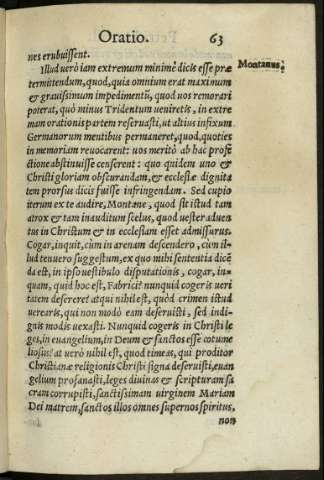 Oratio. 63
nes erubuissent.
Illud uerò iam extremum minimè dicis esse præ
termittendum, quod, quia omnium erat maximum
& grauissimum impedimentũ, quod uos remorari
poterat, quò minus Tridentum ueniretis, in extre
mam orationis partem reseruasti, ut altius infixum
Germanorum mentibus permaneret, quod, quoties
in memoriam reuocarent: uos meritò ab hac profe
ctione abstinuisse censerent: quo quidem uno &
Christi gloriam obscurandam, & ecclesiæ dignita
tem prorsus dicis fuisse infringendam. Sed cupio
iterum ex te audire, Montane, quod sit istud tam
atrox & tam inauditum scelus, quod uester aduen
tus in Christum & in ecclesiam esset admissurus.
Cogar, inquit, cùm in arenam descendero, cum il-
lud tenuero suggestum, ex quo mihi sententia dicẽ
da est, in ipso uestibulo disputationis, cogar, in-
quam, quid hoc est, Fabrici? nunquid cogeris ueri
tatem deserere? at qui nihil est, quòd crimen istud
uerearis, qui non modò eam deseruisti, sed indi-
gnis modis uexasti. Nunquid cogeris in Christi le
ges, in euangelium, in Deum & sanctos esse cõtume
liosus? at uerò nihil est, quod timeas, qui proditor
Christianæ religionis Christi signa deseruisti, euan
gelium profanasti, leges diuinas & scripturam sa
cram corrupisti, sanctissimam uirginem Mariam
Dei matrem, sanctos illos omnes supernos spiritus,
non
Montanus.